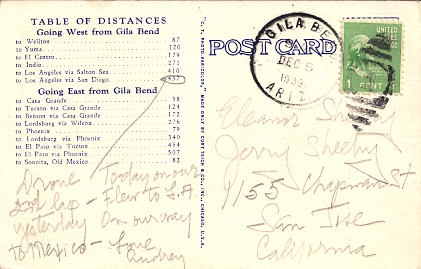 TABLE OF DISTANCES
Going West from Gila Bend
to Wellton 87
to Yuma 120
to El Centro 179
to Indio 271
to Los Angeles via Salton Sea 410
to Los Angeles via San Diego 437
Going East from Gila Bend
to Casa Grande 58
to Tucson via Casa Grande 124
to Benson via Casa Grande 172
to Lordsburg via Wilcox 276
to Phoenix 79
to Lordsburg via Phoenix 340
to El Paso via Tucson 454
to El Paso via Phoenix 507
to Sonoita, Old Mexico 82
Today on our
2nd lap - Flew to L.A.
yesterday On our way
to Mexico - Love
Audrey
"C. T. PHOTO PORTCOLOR" MADE ONLY BY CURT TEICH & CO., INC., CHICAGO, U.S.A.
POST CARD
GILA BE
DEC 5
ARIZ
1 CENT 1
Eleanor Sheehy
Jerry Sheehy
155 Chapman St
San Jose
California